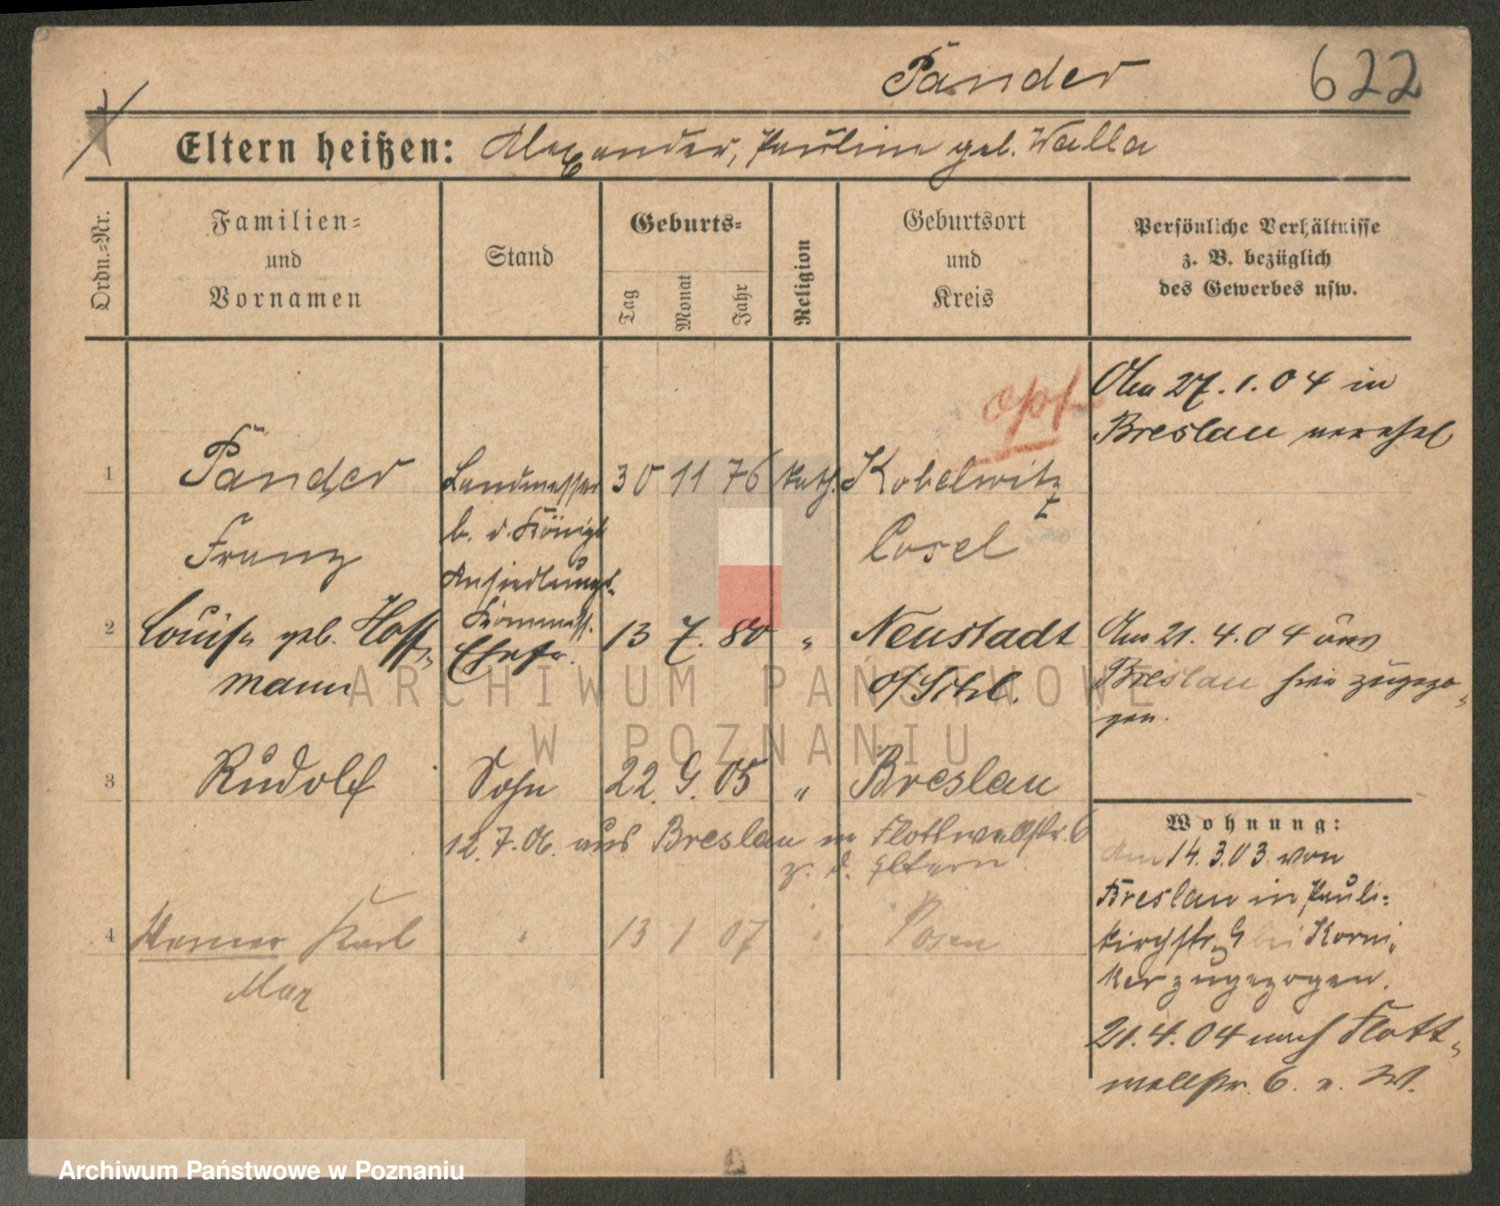 Pander 622
Eltern heißen: Alexander, Pauline geb. Walla
Ordn.-Nr.
Familien- und Vornamen
Stand
Geburts-
Tag Monat Jahr
Religion
Geburtsort und Kreis
Persönliche Verhältnisse z. B. bezüglich des Gewerbes usw.
Am 27.1.04 in
Breslau verehel
1 Pander Landmesser 30 11 76 kath. Kobelwitz
Franz b. d. Königl. Cosel
Ansiedlungs-
Kommiss.
2 Louise geb. Hoff- Ehefr. 13 7. 80 " Neustadt
mann o/Schl.
Am 21.4.04 aus
Breslau hier zugezo-
gen.
3 Rudolf Sohn 22. 9. 05 " Breslau
12.7.06. aus Breslau n Flottwellstr. 6
z. d. Eltern.
4 Werner Karl " 13 1 07 " Posen
Max
Wohnung:
Am 14.3.03 von
Breslau in Pauli-
kirchstr. 9 bei Korni-
ker zugezogen.
21.4.04 nach Flott-
wellstr. 6. e. W.
ARCHIWUM PAŃSTWOWE
W POZNANIU
Archiwum Państwowe w Poznaniu